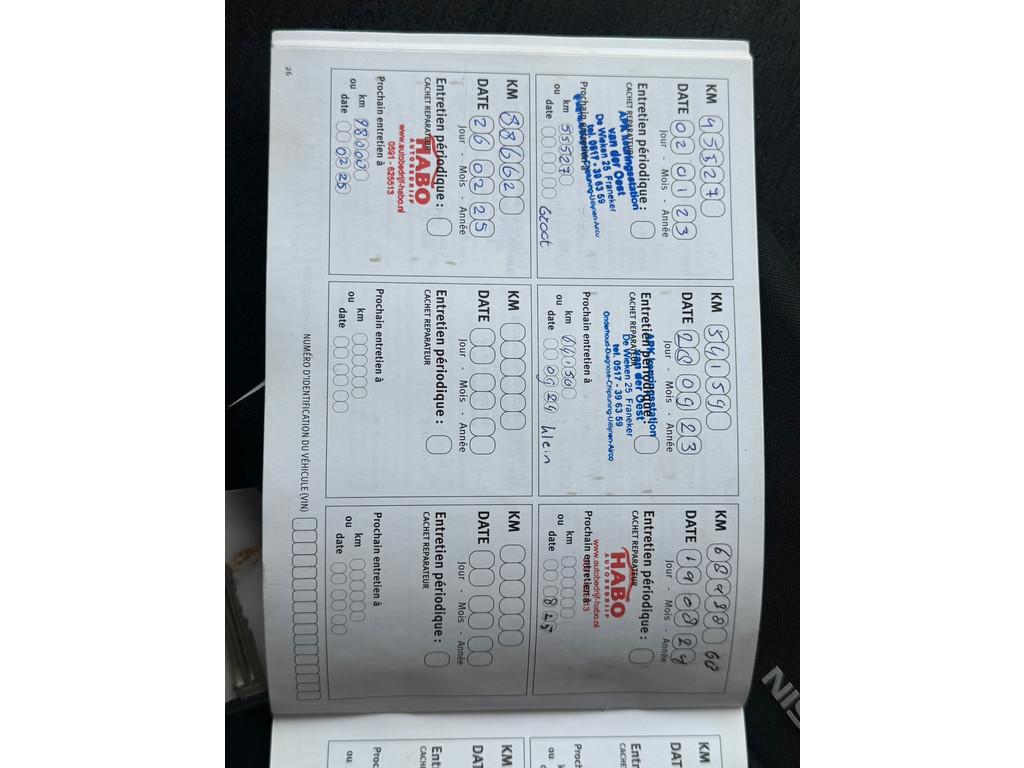 KM 45527
DATE 02 01 23
Jour - Mois - Année
Entretien périodique :
CACHET REPARATEUR
van der Oest
De Wieken 25 Franeker
tel. 0517 - 39 63 59
Prochain entretien à
km 55527
ou
date
Groot
KM 54159
DATE 20 09 23
Jour - Mois - Année
Entretien périodique :
CACHET REPARATEUR
APK keuringsstation
van der Oest
De Wieken 25 Franeker
tel. 0517 - 39 63 59
Onderhoud-Diagnose-Chiptuning-Uitlijnen-Airco
Prochain entretien à
km 64150
ou
date 09 24 klein
KM 68988 GB
DATE 19 08 24
Jour - Mois - Année
Entretien périodique :
CACHET REPARATEUR
HABO
AUTOBEDRIJF
www.autobedrijf-habo.nl
Prochain entretien à
km
ou
date 8 25
KM 88662
DATE 26 02 25
Jour - Mois - Année
Entretien périodique :
CACHET REPARATEUR
HABO
AUTOBEDRIJF
www.autobedrijf-habo.nl
0591 - 625513
Prochain entretien à
km 98000
ou
date 02 25
KM
DATE
Jour - Mois - Année
Entretien périodique :
CACHET REPARATEUR
Prochain entretien à
km
ou
date
KM
DATE
Jour - Mois - Année
Entretien périodique :
CACHET REPARATEUR
Prochain entretien à
km
ou
date
26
NUMÉRO D'IDENTIFICATION DU VÉHICULE (VIN)
KM
DAT
Entr
CACHE
Proch
ou
KM
DAT
Ent
CACH
Proc
ou
NIS